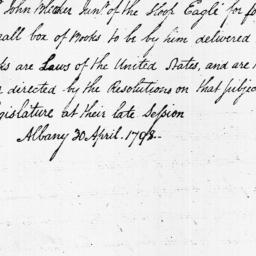 John Bleeker Junr. of the Sloop Eagle for fo
all box of Books to be by him delivered
ks are Laws of the United States, and are
directed by the Resolutions on that subject
gislature at their late Session
Albany 30 April. 1798.